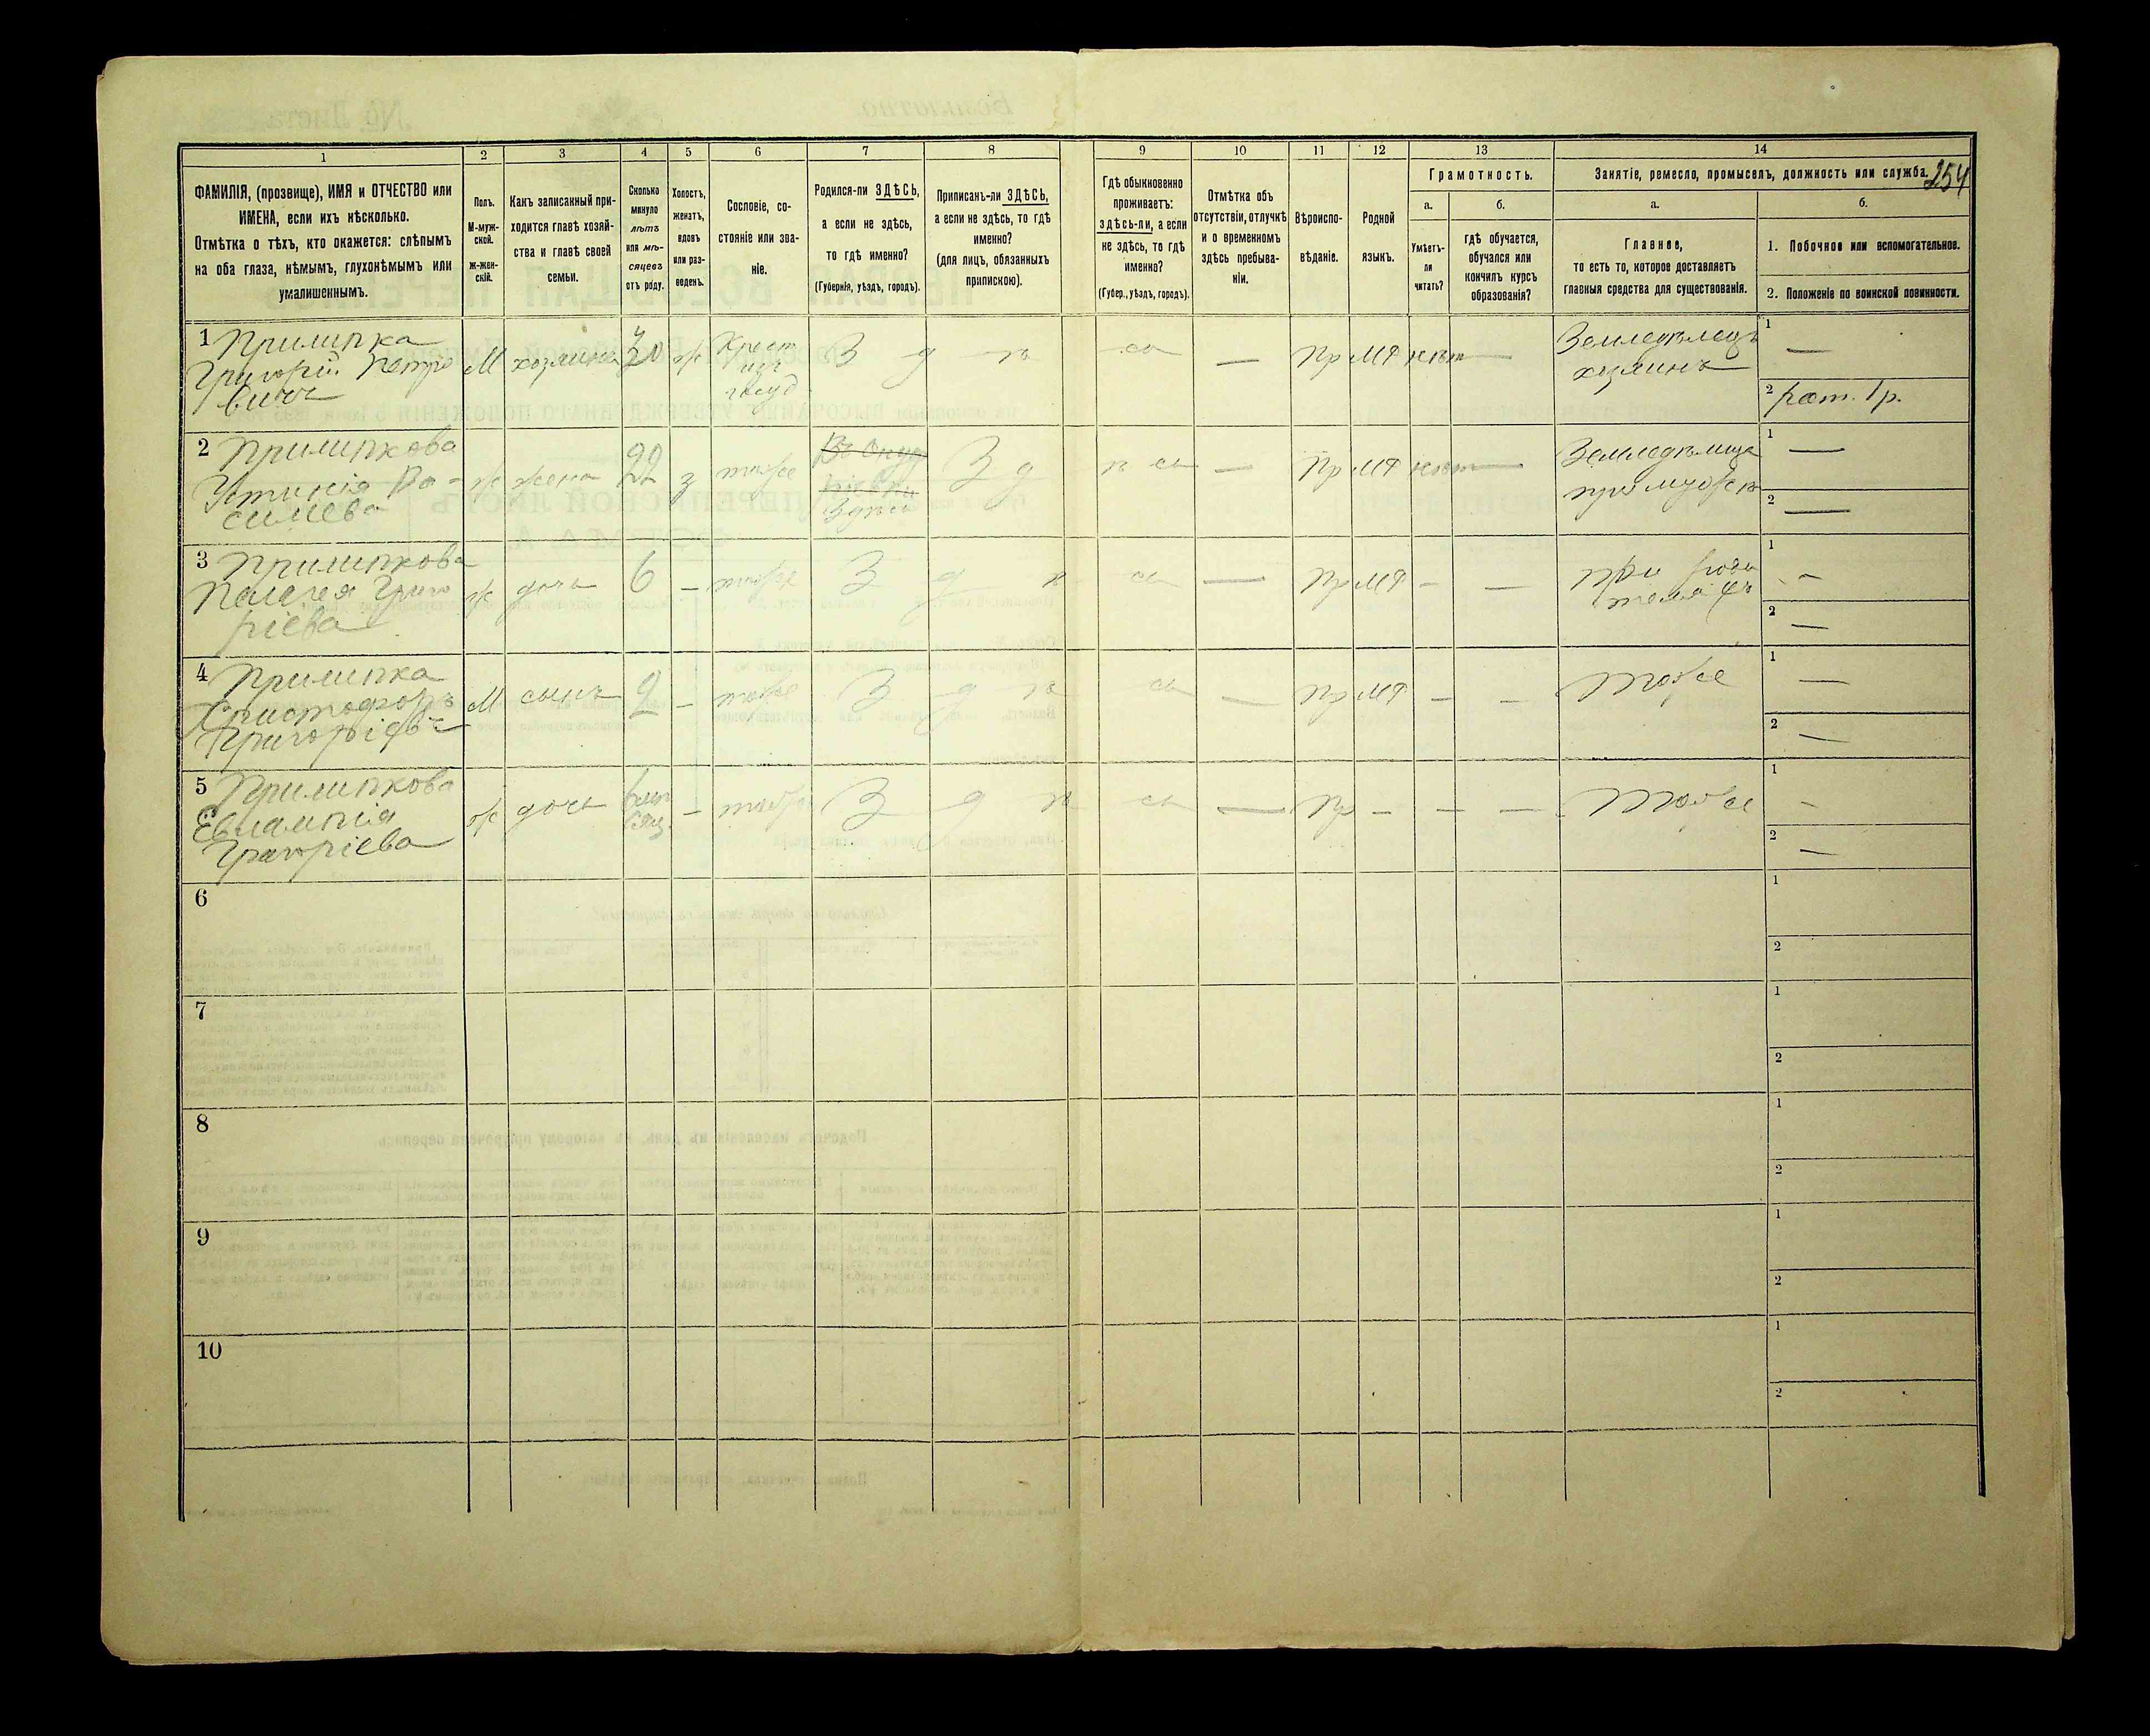 254
1
2
3
4
5
6
7
8
9
10
11
12
13
14
ФАМИЛІЯ, (прозвище), ИМЯ и ОТЧЕСТВО или
ИМЕНА, если ихъ нѣсколько.
Отмѣтка о тѣхъ, кто окажется: слѣпымъ
на оба глаза, нѣмымъ, глухонѣмымъ или
умалишеннымъ.
Полъ.
М-муж-
ской.
ж-жен-
скій.
Какъ записанный при-
ходится главѣ хозяй-
ства и главѣ своей
семьи.
Сколько
минуло
лѣтъ
или мѣ-
сяцевъ
отъ роду.
Холостъ,
женатъ,
вдовъ
или раз-
веденъ.
Сословіе, со-
стояніе или зва-
ніе.
Родился-ли ЗДѢСЬ,
а если не здѣсь,
то гдѣ именно?
(Губернія, уѣздъ, городъ).
Приписанъ-ли ЗДѢСЬ,
а если не здѣсь, то гдѣ
именно?
(для лицъ, обязанныхъ
припискою).
Гдѣ обыкновенно
проживаетъ:
здѣсь-ли, а если
не здѣсь, то гдѣ
именно?
(Губер., уѣздъ, городъ).
Отмѣтка объ
отсутствіи, отлучкѣ
и о временномъ
здѣсь пребыва-
ніи.
Вѣроиспо-
вѣданіе.
Родной
языкъ.
Грамотность.
а.
Умѣетъ-
ли
читать?
б.
гдѣ обучается,
обучался или
кончилъ курсъ
образованія?
Занятіе, ремесло, промыселъ, должность или служба.
а.
Главное,
то есть то, которое доставляетъ
главныя средства для существованія.
б.
1. Побочное или вспомогательное.
2. Положеніе по воинской повинности.
1 Прилипка
Григорій Петро
вичъ
М
хозяинъ
ж
Крест
изъ
госуд
З д ѣ сь
—
Пр
МР
нѣт —
Земледѣлецъ
хозяинъ
1 —
2 рат. 1 р.
2 Прилипкова
Устинія Ва-
силева
ж
жена
22
з
тоже
Здѣсь
З д ѣ сь
—
Пр
МР
нѣт —
Земледѣлица
при мужѣ
1 —
2 —
3 Прилипкова
Пелагея Григо
ріева
ж
дочь
6
—
тоже
З д ѣ сь
—
Пр
МР
—
—
при роди
теляхъ
1 —
2 —
4 Прилипка
Христофоръ
М
сынъ
2
—
тоже
З д ѣ сь
—
Пр
МР
—
—
тоже
1 —
2 —
5 Прилипкова
Евлампія
Григоріева
ж
дочь
—
тоже
З д ѣ сь
—
Пр
—
—
—
тоже
1 —
2 —
6
1
2
7
1
2
8
1
2
9
1
2
10
1
2